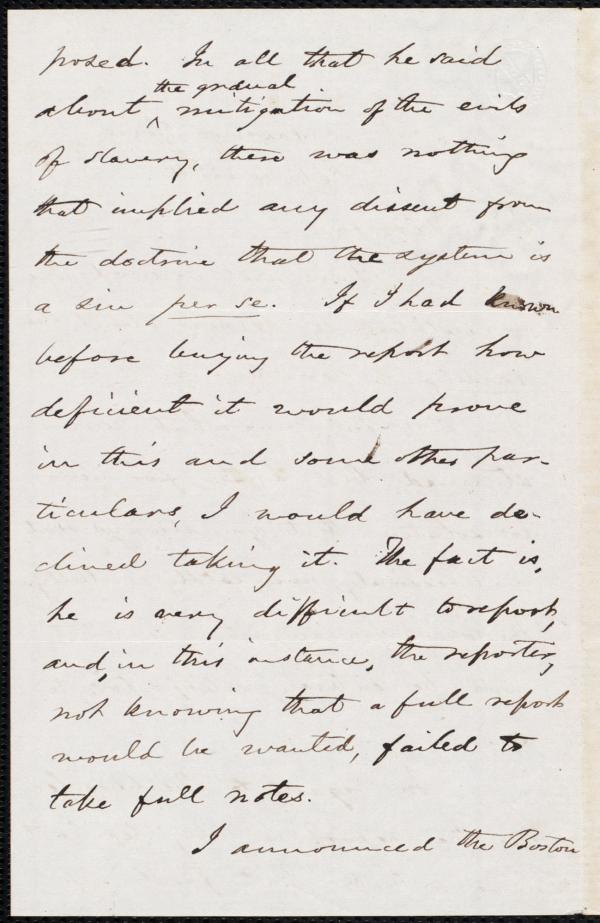 posed. In all that he said
about ^ the gradual mitigation of the evils
of slavery, there was nothing
that implied any dissent from
the doctrine that the system is
a sin per se. If I had known
before buying the report how
deficient it would prove
in this and some other par-
ticulars, I would have de-
clined taking it. The fact is,
he is very difficult to report,
and, in this instance, the reporter,
not knowing that a full report
would be wanted, failed to
take full notes.
I announced the Boston